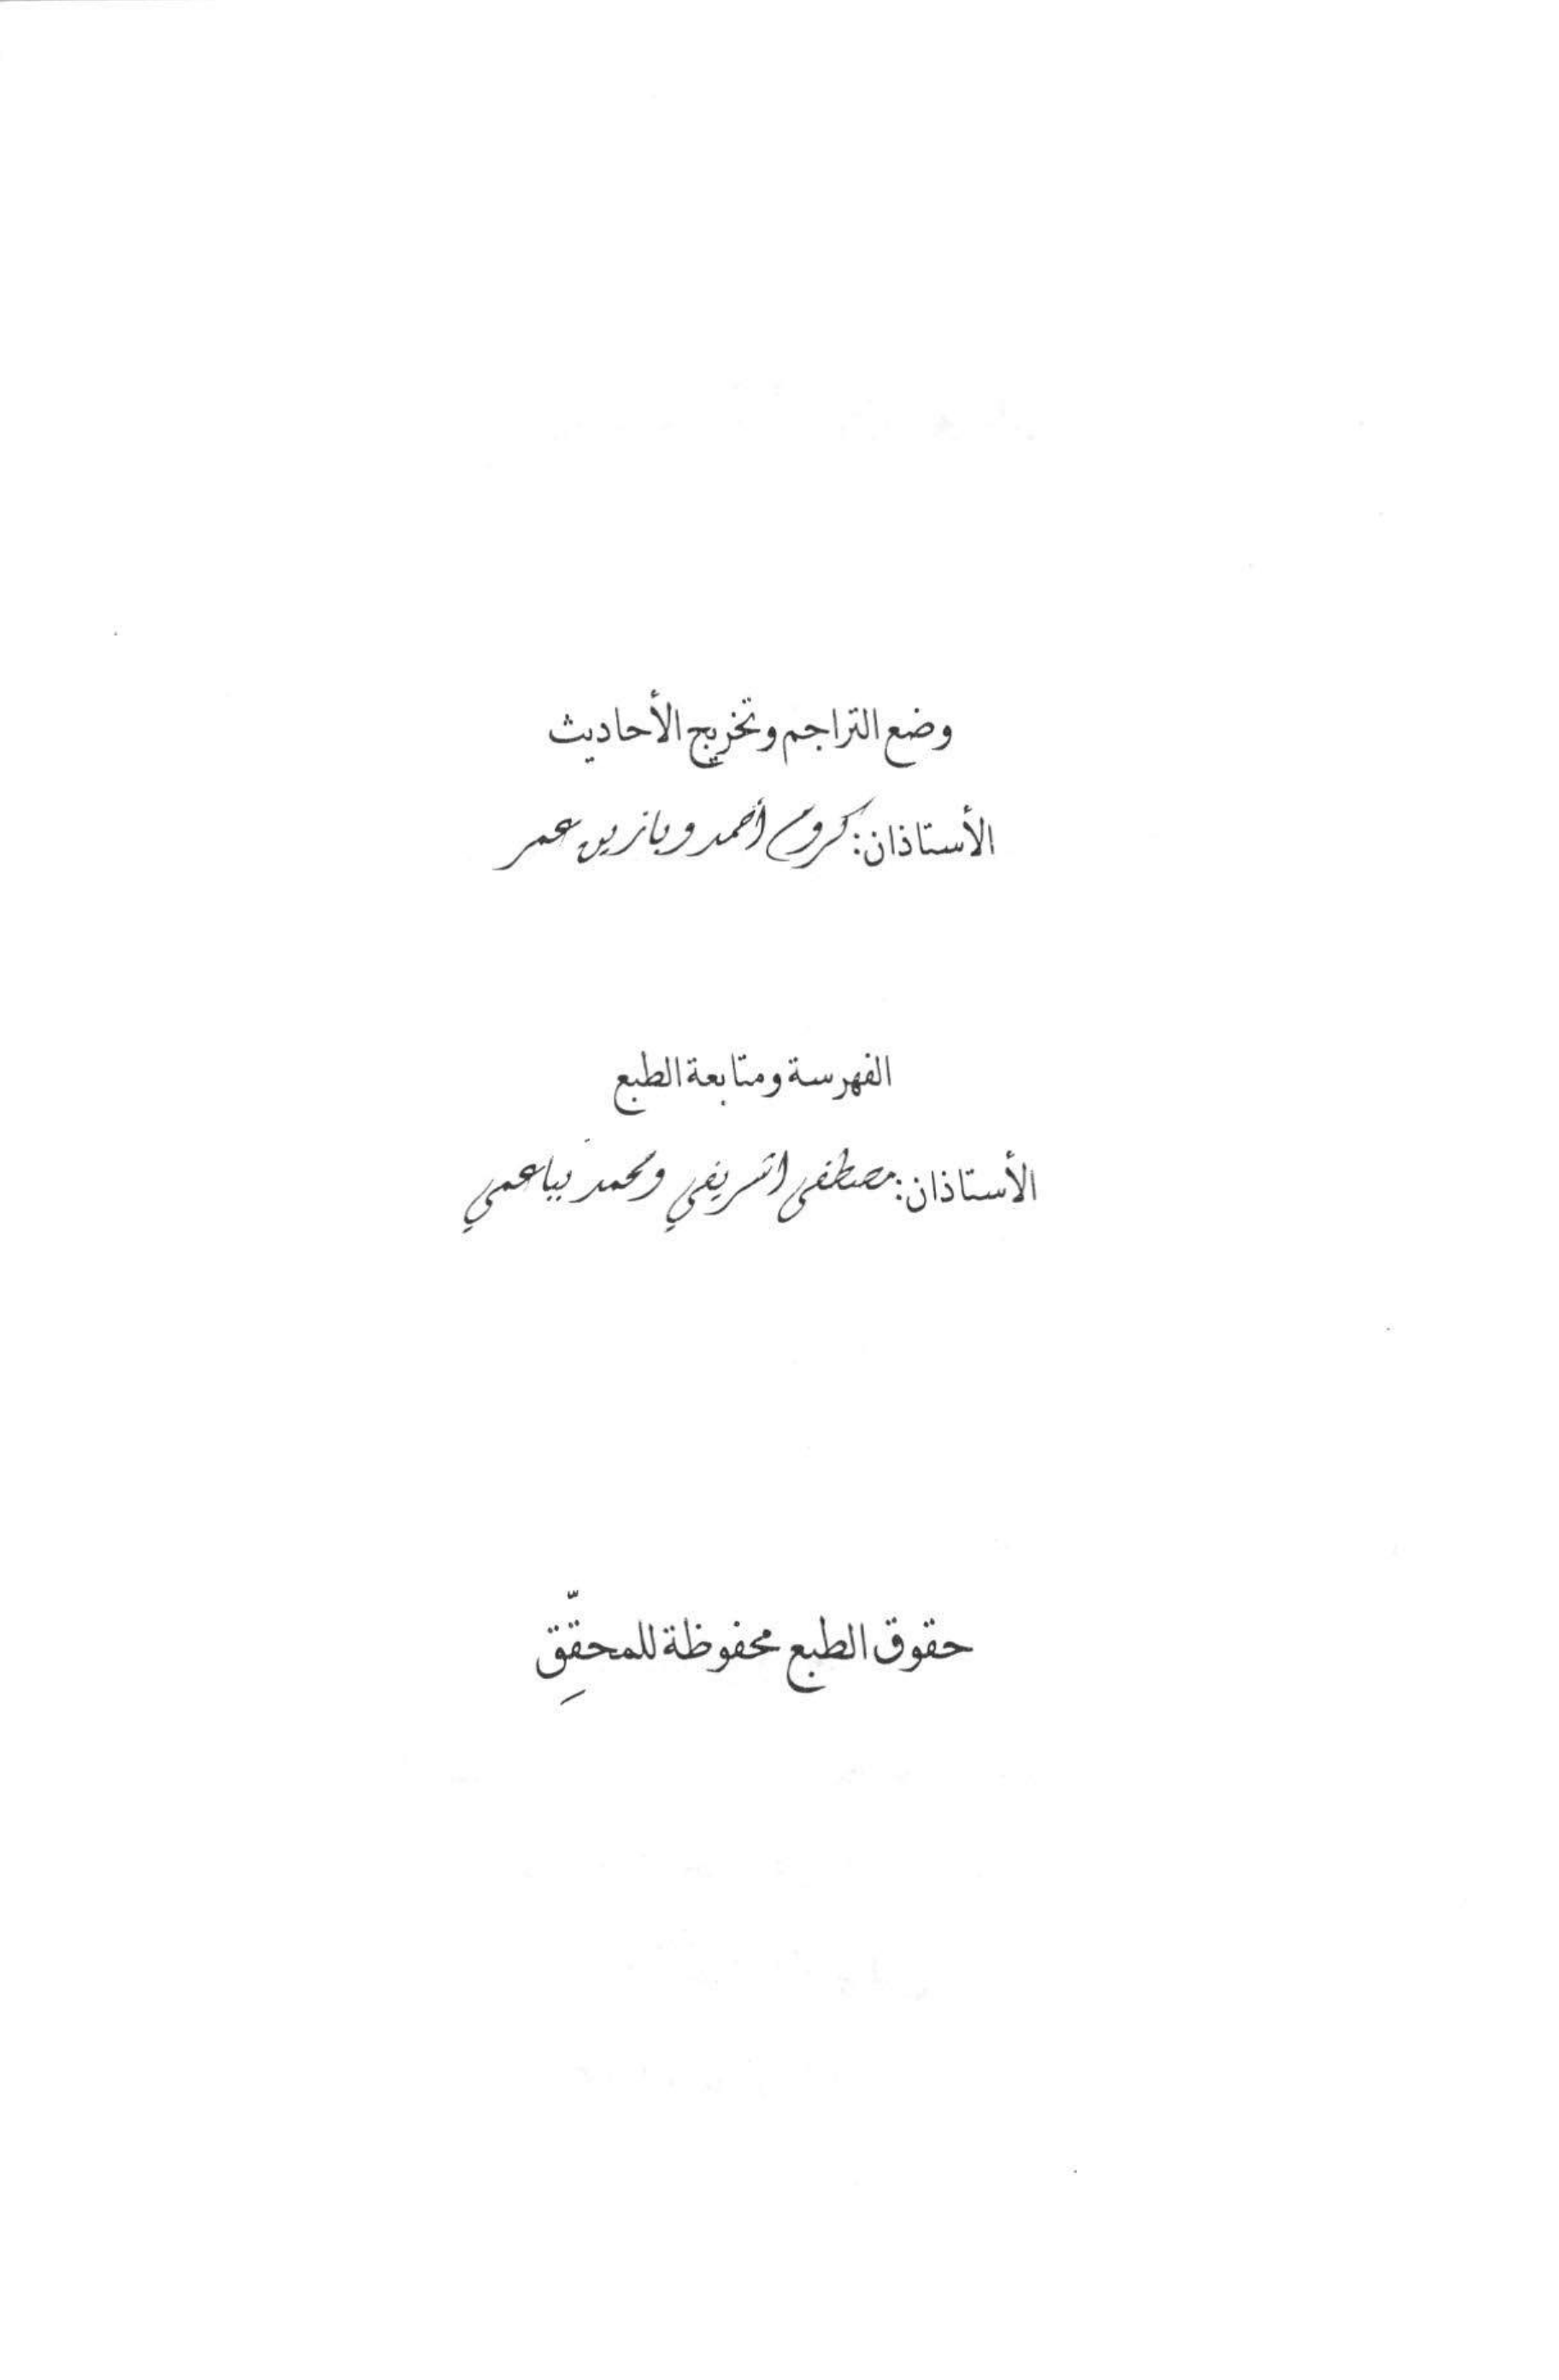 وضع التراجم وتخريج الأحاديث
الأستاذان: كروم أحمد وبازين عمر
الفهرسة ومتابعة الطبع
الأستاذان: مصطفى اشريفي ومحمد بباعمي
حقوق الطبع محفوظة للمحقّقِ